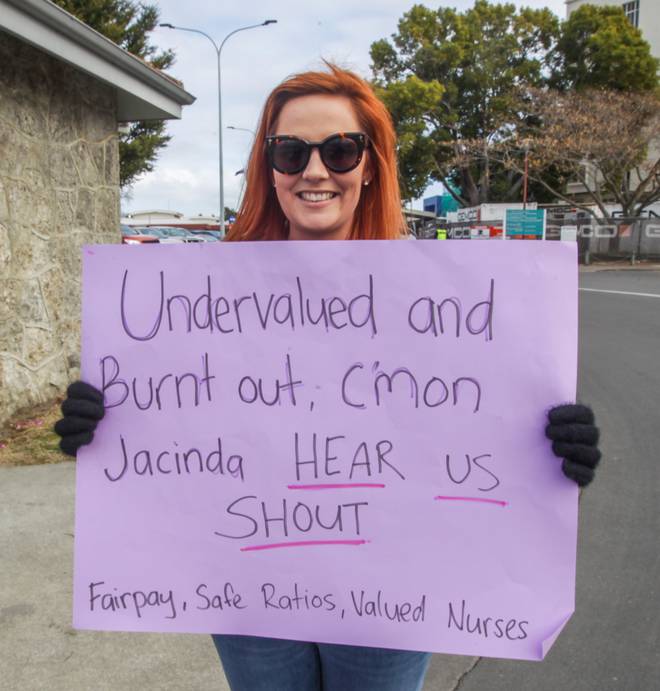 Undervalued and
Burnt out, C'mon
Jacinda HEAR US
SHOUT
Fairpay, Safe Ratios, Valued Nurses